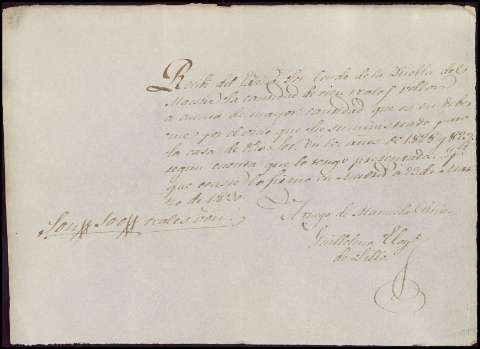 Recibí del Exmo Sor Conde de la Puebla del
Maestre la cantidad de cien reales vellon
a cuenta de mayor cantidad que es en deber
me por el que he suministrado para
la casa de en los años de 1828 y 1829
segun cuenta que le tengo presentada. Y pa
que conste lo firmo en Madrid a 23 de
zo de 1830.
Son reales von.
A ruego de Manuela
Guillermo Eloy
de Lillo